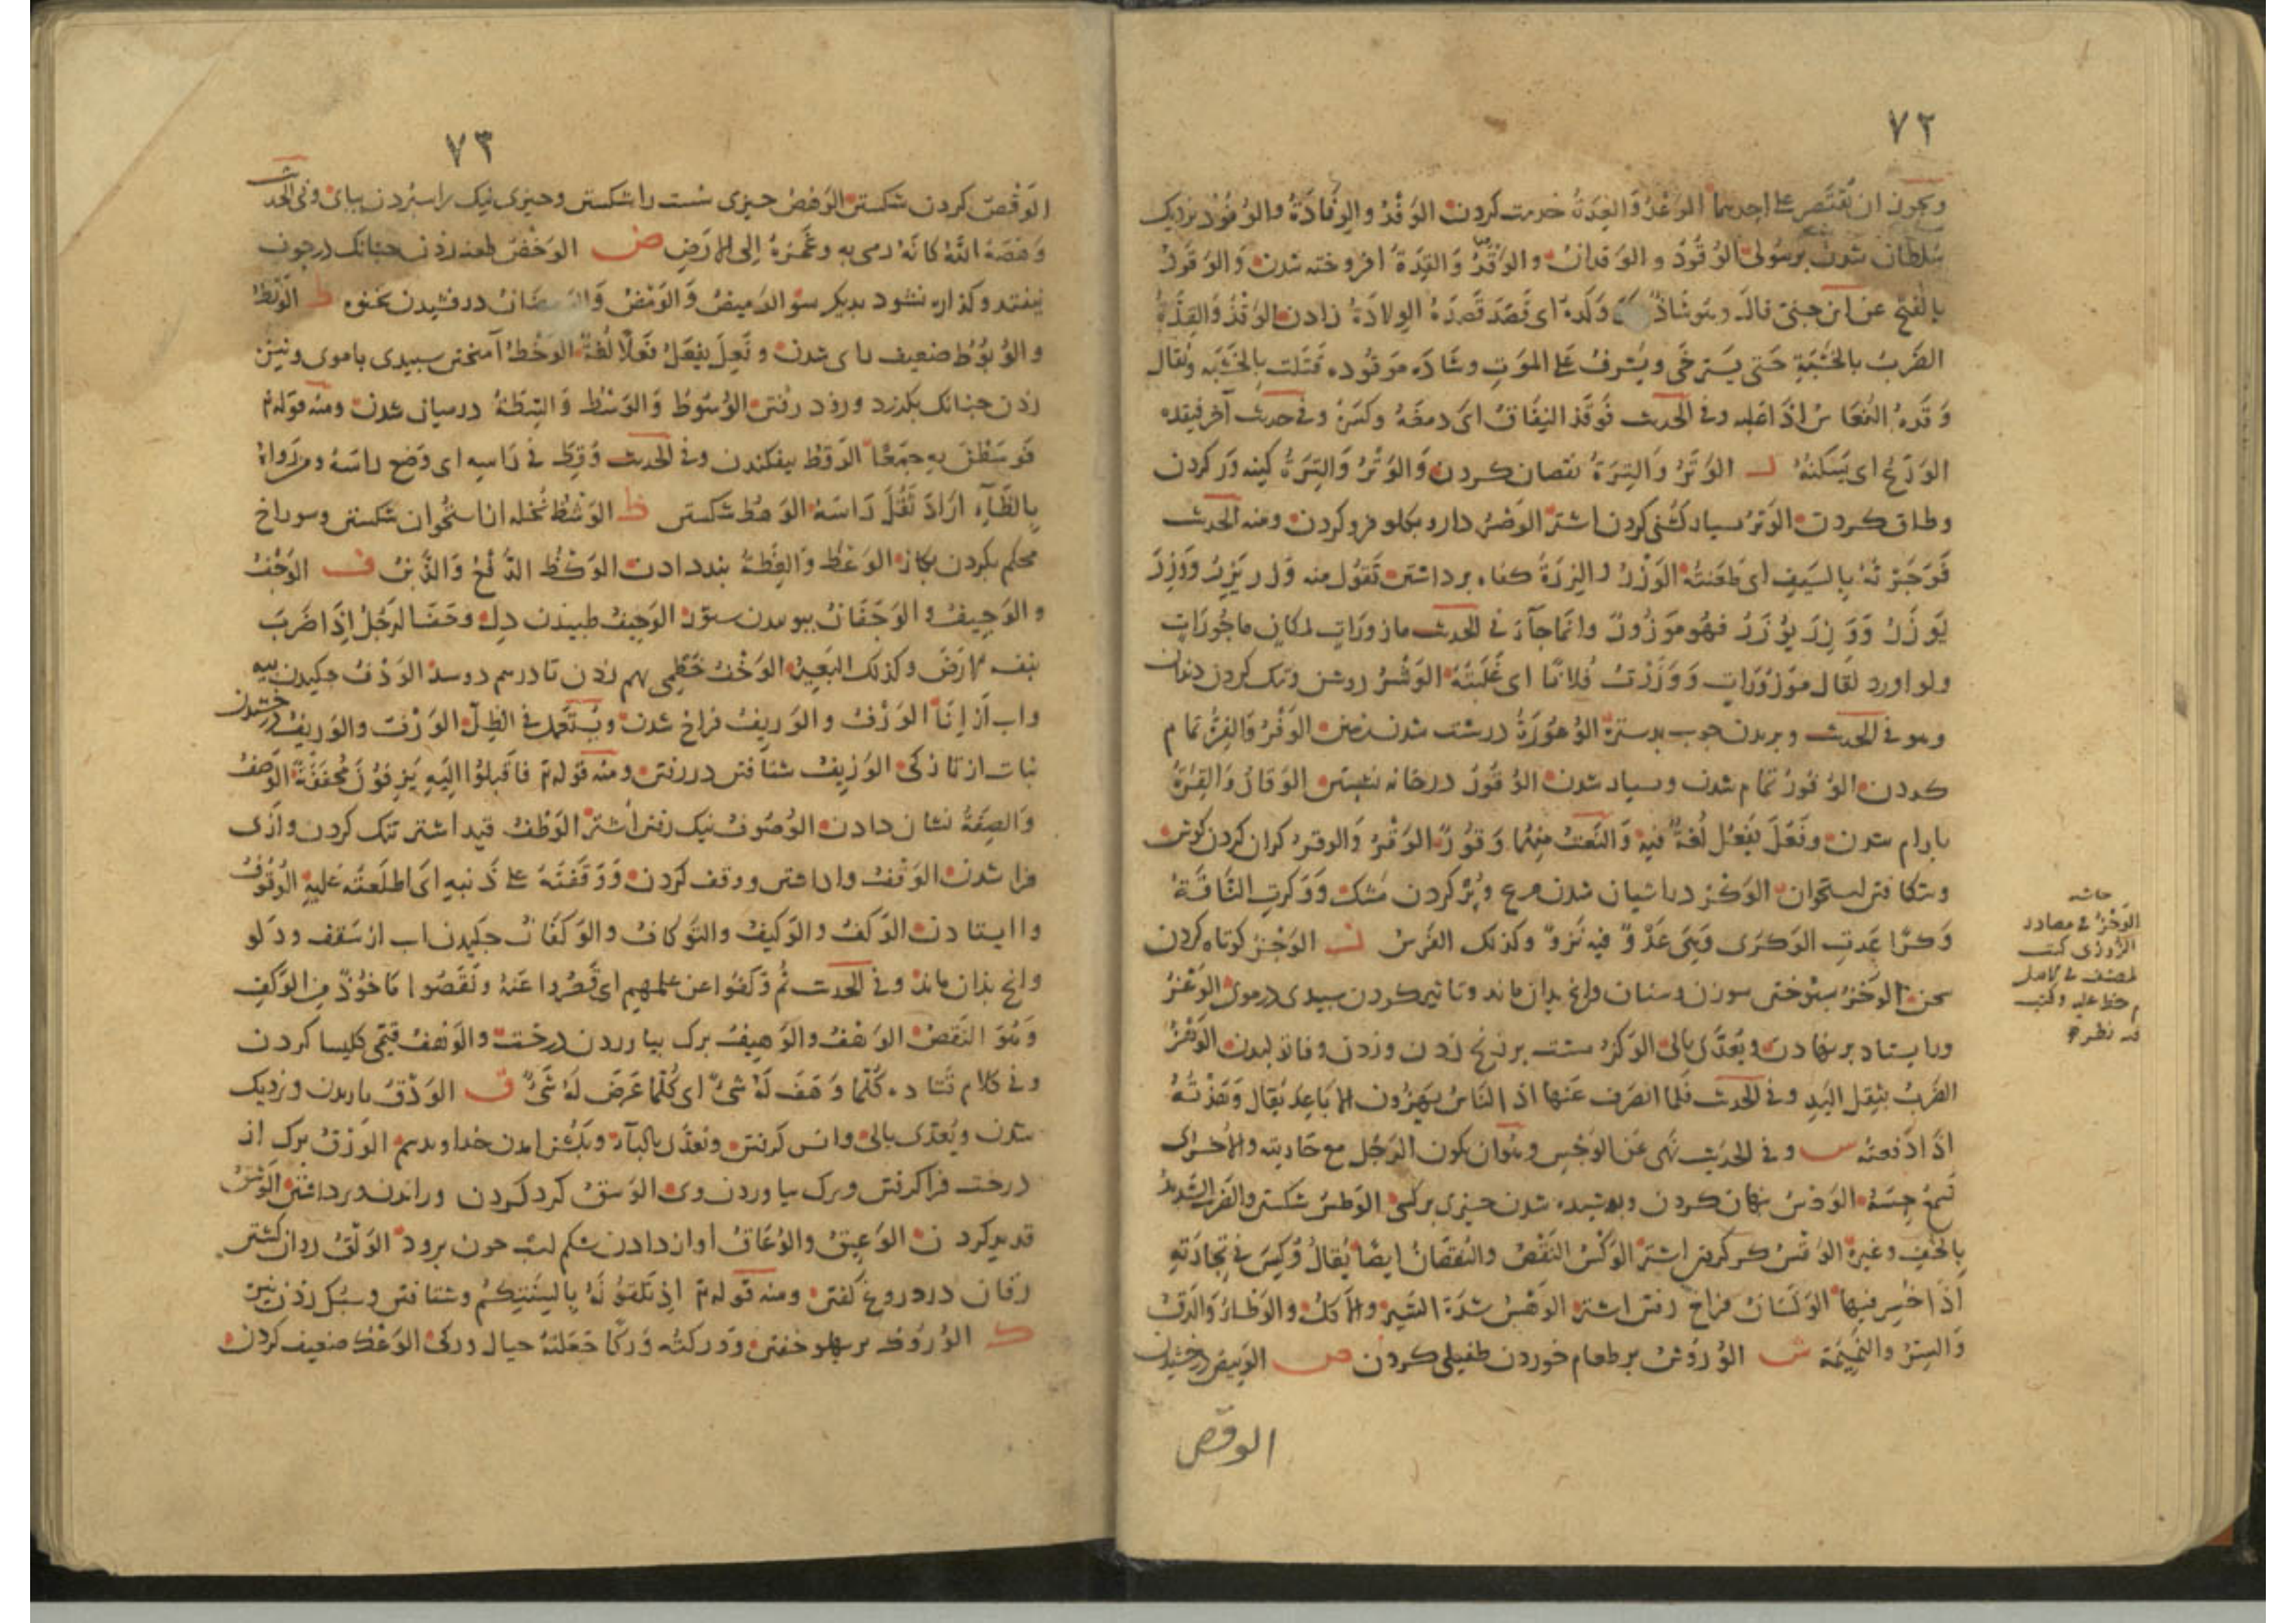 ٧٢
ويجوز ان يقتصر على احدهما الوَغْدُ وَالغِدَةُ خدمت كردن الوَفْدُ والوِفَادَةُ والوُفُوْد نزديك
سُلطان شدن برسُولى الوُقُودُ والوَقدانُ والوَقْدُ وَالقِدَةُ افروخته شدن وَالوَقودُ
بالفتح عن ابن جنىّ قالـ وهو شَاذٌّ وَلَده اى قَصَدَ قَصدَهُ الوِلادَةُ زادن الوَقْذُ وَالقِذَةُ
الضَربُ بالخَشَبَةِ حَتى يَسترخَى ويُشرفُ عَلى المَوتِ وشَاة مَوقُوذه قتلت بِالخَشَبَه ويُقال
وَقَذهُ النُعَاسُ اذَا غلبه وفى الحَديث فَوقَذ النِفَاقَ اى دمغَهُ وكسَرَهُ وفى حديث آخر فيقذه
الوَرَعُ اى يُسَكنُهُ ر الوَتْرُ وَالتِرَةُ نقصان كردن وَالوَتْرُ وَالتِرَةُ كينه ور كردن
وطاق كردن الوَثرُ بسيار كشنى كردن اشتر الوَجْرُ دارو بكلو فرو كردن ومنه الحَديث
فَوَجَرْتُهُ بِالسَيفِ اى طَعَنتُهُ الوَزْرُ والزِرَةُ كناه برداشتن تَقُول مِنه وَزَر يَزِرُ وَوَزِرَ
يَوْزَرُ وَوُزِرَ يُوْزَرُ فهُو مَوْزُورٌ وانّمَا جآءَ فى الحَديث مازورَاتٍ لمكانِ ماجُورَاتٍ
ولو افرد لقَال مَوْزُوْرَاتٍ وَوَزَرْتُ فُلانًا اى غَلَبتُهُ الوَشْرُ روشن وتنك كردن دندان
وهو فى الحَديث وبريدن چوب بدستره الوُعُوْرَةُ درشت شدن زمين الوَفْرُ وَالفِرَةُ تمام
كردن الوُفُورُ تمام شدن وبسيار شدن الوُقُورُ درخانه نشستن الوَقارُ وَالقِرَةُ
بارام شدن وفَعُلَ يَفعُلُ لُغةٌ فيه وَالنَعتُ مِنهُمَا وَقُوْرٌ الوَقْرُ وَالوقر كران كردن كوش
وشكافتن استخوان الوَكْرُ در اشيان شدن مرغ وپُر كردن مَشك وَوَكرتِ النَاقَةُ
وَكرًا عَدتِ الوَكرَى وَهِىَ عَدْوٌ فيه نَزوٌ وكذلك الفَرَسُ ز الوَجْزُ كوتاه كردن
سخن الوَخْزُ سبوختن سوزن وسنان وانچ بدان ماند وتاثير كردن سپيدى در موى الوَعْزُ
ورا يستاد برنهادن ويُعَدَّى بِالى الوَكزُ مشت بر زنخ زدن وزدن الوَهْزُ
الضَربُ بثِقل اليَدِ وفى الحَديث فَلمّا انصَرَف عَنها اذ النَاسُ يَهِزُون الابَاعِد يُقال وَهَزْتُهُ
اذَا دَفعتَه س وفى الحَديث نهى عَن الوَجْسِ وهُوَ ان يكون الرَجُل مع جَاريته والاخرَى
تَسمعُ حِسَهُ الوَدْسُ نهان كردن وپوشيده شدن چيزى بركسى الوَطسُ شكستن وَالضَربُ الشَديدُ
بِالخُفِ وغيره الوَكْسُ النَقصُ والنُقصَانُ ايضًا يُقالُ وُكِسَ فى تِجَارَتِهِ
اذَا خسِر فيهَا الوَلسَانُ فراخ رفتن اشتر الوَهْسُ شدّة السَير والاكل والوَطءُ والدَقُ
وَالسِرُ والنَمِيْمَة ش الوُرُوْشُ بر طعام خوردن طفيلى كردن ص الوَبيصُ درخشيدن
الوقص
حاشيه
الوَخزُ فى مصادر
الزوزنى كتب
المصنف فى كامل
م خط عليه وكتب
فيه نظر
٧٣
الوَقْصُ كردن شكستن الوَهْصُ چيزى سُست را شكستن وچيزى نيك را سپردن بپاى وفى الحديث
وَهَصَهُ اللهُ كانّهُ رمى به وغَمزهُ اِلى الارَضِ ض الوَخْضُ طعنه زدن چنانك درجوف
نيفتد وكذاره نشود بديكر سو الوَميضُ وَالوَمْضُ وَالوَمضَانُ درفشيدن بخنوه ط الوَبْطُ
والوُبُوْطُ ضعيف راى شدن وفَعِلَ يفعَلُ فَعَلًا لُغةٌ الوَخْطُ آميختن سپيدى باموى ونيزه
زدن چنانك بكذرد وزود رفتن الوُسُوطُ وَالوَسْطُ وَالسِطَةُ درميان شدن ومنه قوله تم
فَوسَطْنَ بِهِ جَمعًا الوَقطُ بيفكندن وفى الحَديث وُقِطَ فى رَاسِهِ اى وُضِع رَاسَهُ ومن رَواهُ
بِالظَآءِ ارَادَ ثَقُلَ رَاسَهُ الوَهطُ شكستن ظ الوَشْظُ نخله از استخوان شكستن وسوراخ
محكم بكردن بكاز الوَعْظُ وَالعِظةُ پند دادن الوَكْظُ الدَّفْعُ وَالذَّبنُ ف الوَجْفُ
والوَجِيفُ والوَجَفَانُ بپويدن ستور الوَجيفُ طپيدن دل وحفَ الرَجُلُ اِذَا ضَرَبَ
بنفسه الارَضَ وكذلك البَعِيرُ الوَخْفُ خَطمى بهم زدن تا درهم دوسد الوَذْفُ چكيدن پيه
واب از اِنآء الوَرْفُ والوَرِيفُ فراخ شدن ويُستَعمَل فى الظِلّ الوَرْفُ والوَرِيفُ درخشيدن
نبات از تازكى الوَزِيفُ شتافتن در رفتن ومنه قوله تم فاَقبلُوا اِلَيهِ يَزِفوْنَ مُخفَفَةً الوَصْفُ
وَالصِفَةُ نشان دادن الوُصُوفُ نيك رفتن اُشتر الوَظْفُ قيد اشتر تنك كردن وازپى
فرا شدن الوَقْفُ واداشتن ووقف كردن وَوَقفتُهُ عَلى ذَنبهِ اَى اطلَعتُه عَليهِ الوُقُوفُ
وا ايستادن الوَكفُ والوَكيفُ والتَوكَافُ والوَكَفَانُ چكيدن اب از سَقف ودلو
وانچ بدان ماند وفى الحَديث ثُمَّ وَكَفُوا عن علمهِم اى قَصّرُوا عَنهُ ونَقَصُوا مَاخُوْذٌ مِن الوَكَفِ
وَهُوَ النَقصُ الوَهْفُ والوَهِيفُ برك بياوردن درخت والوَهْفُ قَيّمى كليسا كردن
وفى كلام قَتاده كُلّمَا وَهَفَ لَهُ شَىٌ اى كُلّمَا عَرَضَ لَهُ شَىٌ ق الوَدْقُ باريدن ونزديك
شدن ويُعَدَّى بِالى وانس كرفتن ويُعَدَّى بِالبآء الوَرْقُ برك از
درخت فراكرفتن وبرك بياوردن وى الوَسْقُ كرد كردن وراندن وبرداشتن الوَشْقُ
قديد كردن الوَعِيقُ والوُعَاقُ اواز دادن شكم اسب چون برود الوَلْقُ روان كشتن
زفان در دروغ كفتن ومنه قَوله تم اِذ تَلِقوْنَهُ بِاَلسِنَتِكُم وشتافتن وسُبك زدن نيزه
ك الوُرُوْكُ بر پهلو خفتن وَوَركتُه وَركًا جَعَلتهُ حيال وركى الوَعْكُ ضعيف كردن